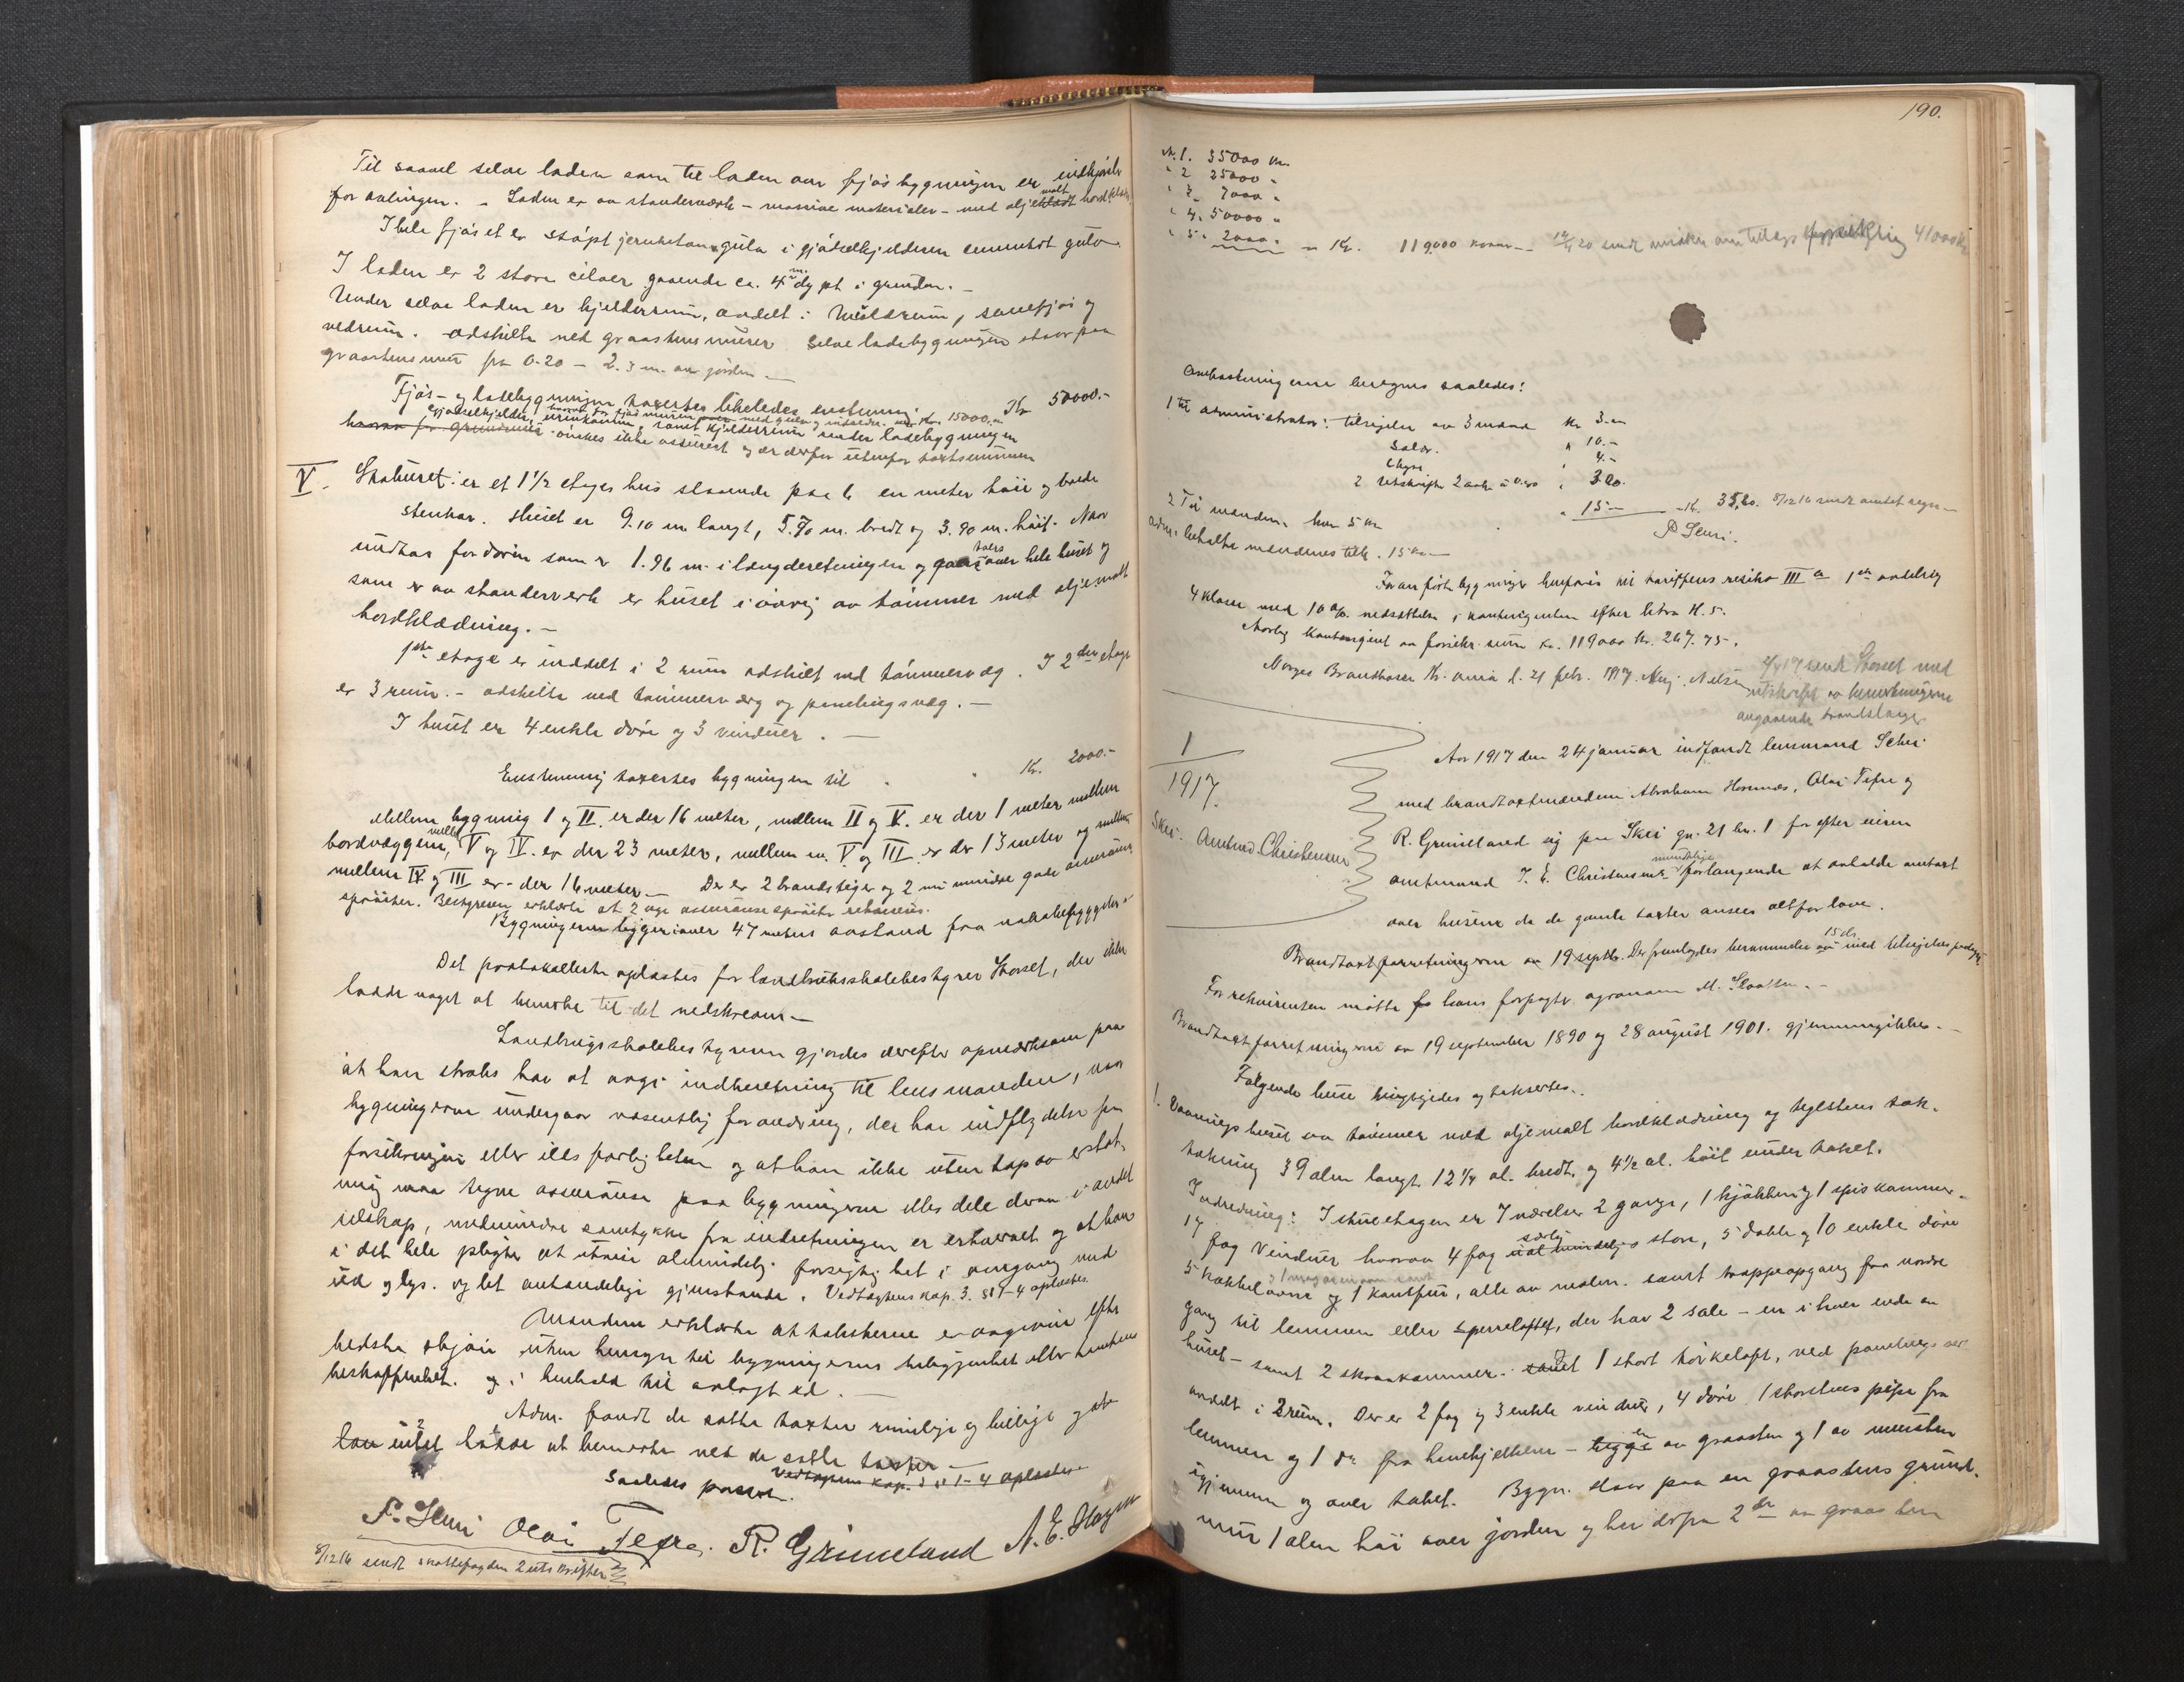 Til saavel selve laden som til laden over fjøsbygningen er indkjørsler
for avlingen. - Laden er av standerverk - massive materialer - med oljemalt bordklædn.
I hele fjøset er støpt jernbetongulv i gjødselkjelderen cementert gulv.
I laden er 2 store siloer gaaende ca. 4 m. dypt i grunden. -
Under selve laden er kjelderrum, avdelt i , sauefjøs og
vedrum. adskilte ved graastensmurer. Selve ladebygningen staar paa
graastensmur fra 0.20 - 2.3 m. over jorden -
Fjøs- og ladebygningen taxertes likeledes enstemmig Kr 50000.-
gjødselkjelder, , hvorav for fjøs muren med gulv og indredn. Kr. 15000,
samt kjelderrum under ladebygningen
ønskes ikke assurert og er derfor utenfor taxtsummen
V. Stabburet: er et 1½ etages hus staaende paa 6 en meter høie og brede
stenkar. Huset er 9.10 m. langt, 5.70 m. bredt og 3.90 m. høit. Naar
undtas fordøren som er 1.96 m. i længderetningen og tvers over hele huset og
som er av standerverk er huset i øvrig av tømmer med oljemalt
bordklædning. -
1ste etage er inddelt i 2 rum adskilt ved tømmervæg. I 2den etage
er 3 rum. - adskilte ved tømmervæg og panelingsvæg. -
I huset er 4 enkle døre og 3 vinduer. -
Enstemmig taxertes bygningen til Kr. 2000.-
Mellem bygning I og II er der 16 meter, mellem II og V. er der 1 meter mellem
bordvæggene, mellem V og IV. er der 23 meter, mellem nr. V og III er der 13 meter og
mellem IV og III er der 16 meter - Der er 2 brandstiger og 2 mindre gode assurance
sprøiter. Bestyreren erklærte at 2 nye assurancesprøiter rekvireres.
Bygningerne ligger i over 47 meters avstand fra nabobebyggelse.
Det protokollerte oplæstes for landbruksskolebestyrer Storset, der ikke
hadde noget at bemerke til det nedskrevne -
Landbrugsskolebestyreren gjordes derefter opmerksom paa
at han straks har at avgi indberetning til lensmanden, naar
bygningerne undergaar væsentlig forandring, der har indflydelse paa
forsikringen eller ildsfarligheten, og at han ikke uten tap av erstat-
ning maa tegne assurance paa bygningerne eller dele derav i andet
selskap, medmindre samtykke fra indretningen er erhvervet og at han
i det hele pligter at utvise almindelig forsigtighet i omgang med
ild og lys. og let antændelige gjenstande. Vedtægtens kap. 3. §§ 1-4 oplæstes.
Mændene erklærte at taksterne er avgivne efter
bedste skjøn uten hensyn til bygningernes beliggenhet eller tomtens
beskaffenhet. og i henhold til avlagt ed. -
Adm. fandt de satte taxter rimelige og billige og at
han intet hadde at bemerke ved de satte taxter -
Vedtægtens kap. 3 §§ 1-4 oplæstes
Saaledes passert.
Olai Tefre. R. Grimeland A. E.
8/12 16 sendt skattefogden 2 utskrifter
190.
Nr. 1. 35000 kr.
" 2 25000 "
" 3 7000 "
" 4. 50000 "
" 5 " 2000 " = Kr. 119000 kroner - 41000 kr
Omkostningerne beregnes saaledes:
1 til administrator: tilsigelse av 3 mænd Kr 3.-
Salær. " 10.-
Skyss " 4.-
2 Utskrifter 2 ark à 0.80 " 3.20.
2 Til mændene hver 5 kr " 15 - Kr. 35.20. 8/12 16 sendt amtet regn -
Adm. behalte mændenes tilk. 15 kr. -
Foranførte bygninger henføres til tariffens risiko III a 1ste avdeling
4 klasse med 10 % nedsættelse i kontingenten efter litra H. 5.
Aarlig kontingent av forsikr. sum kr. 119000 kr. 267.75.
Norges Brandkasse Kr.ania d. 21 febr. 1917. Nilsen
sendt Storset med
utskrift av bemerkningerne
angaaende brandstiger
1
1917.
Skei. Amtmd. Christensen
Aar 1917 den 24 januar indfandt lensmand
med brandtaxtmændene Abraham , Olai Tefre og
R. Grimeland sig paa Skei gn. 21 bn. 1 for efter eieren
amtmand J. E. Christensens mundtlige forlangende at avholde omtaxt
over husene da de gamle taxter ansees altfor lave.
Brandtaxtforretningerne av 19 septb. Der fremlagdes av 15 ds. med tilsigelses
For rekvirenten møtte hans forpagter agronom M. Slaatten. -
Brandtaxtforretningerne av 19 september 1890 og 28 august 1901. gjennemgikkes. -
Følgende huse besigtigedes og taksertes.
1. Vaaningshuset av tømmer med oljemalt bordklædning og teglstens tak.
tækning 39 alen langt. 12 1/4 al. bredt. og 4½ al. høit under taket.
Indredning: I stueetagen er 7 værelser 2 gange, 1 kjøkken og 1 spiskammer.
17 fag vinduer hvorav 4 fag særlig store, 5 doble og 10 enkle døre
5 kakkelovne og 1 komfur, alle av malm. samt trappeopgang fra nordre
gang til lemmen eller sperreloftet, der har 2 sale - en i hver ende av
huset - samt 2 skraakammer. 1 stort tørkeloft, ved panelings
avdelt i 2 rum. Der er 2 fag og 3 enkle vinduer, 4 døre 1 skorstenspipe fra
lemmen og 1 do fra - en av graasten og 1 av mursten
igjennem og over taket. Bygn. staar paa en graastens grund.
mur 1 alen høi over jorden og har 2 av graasten